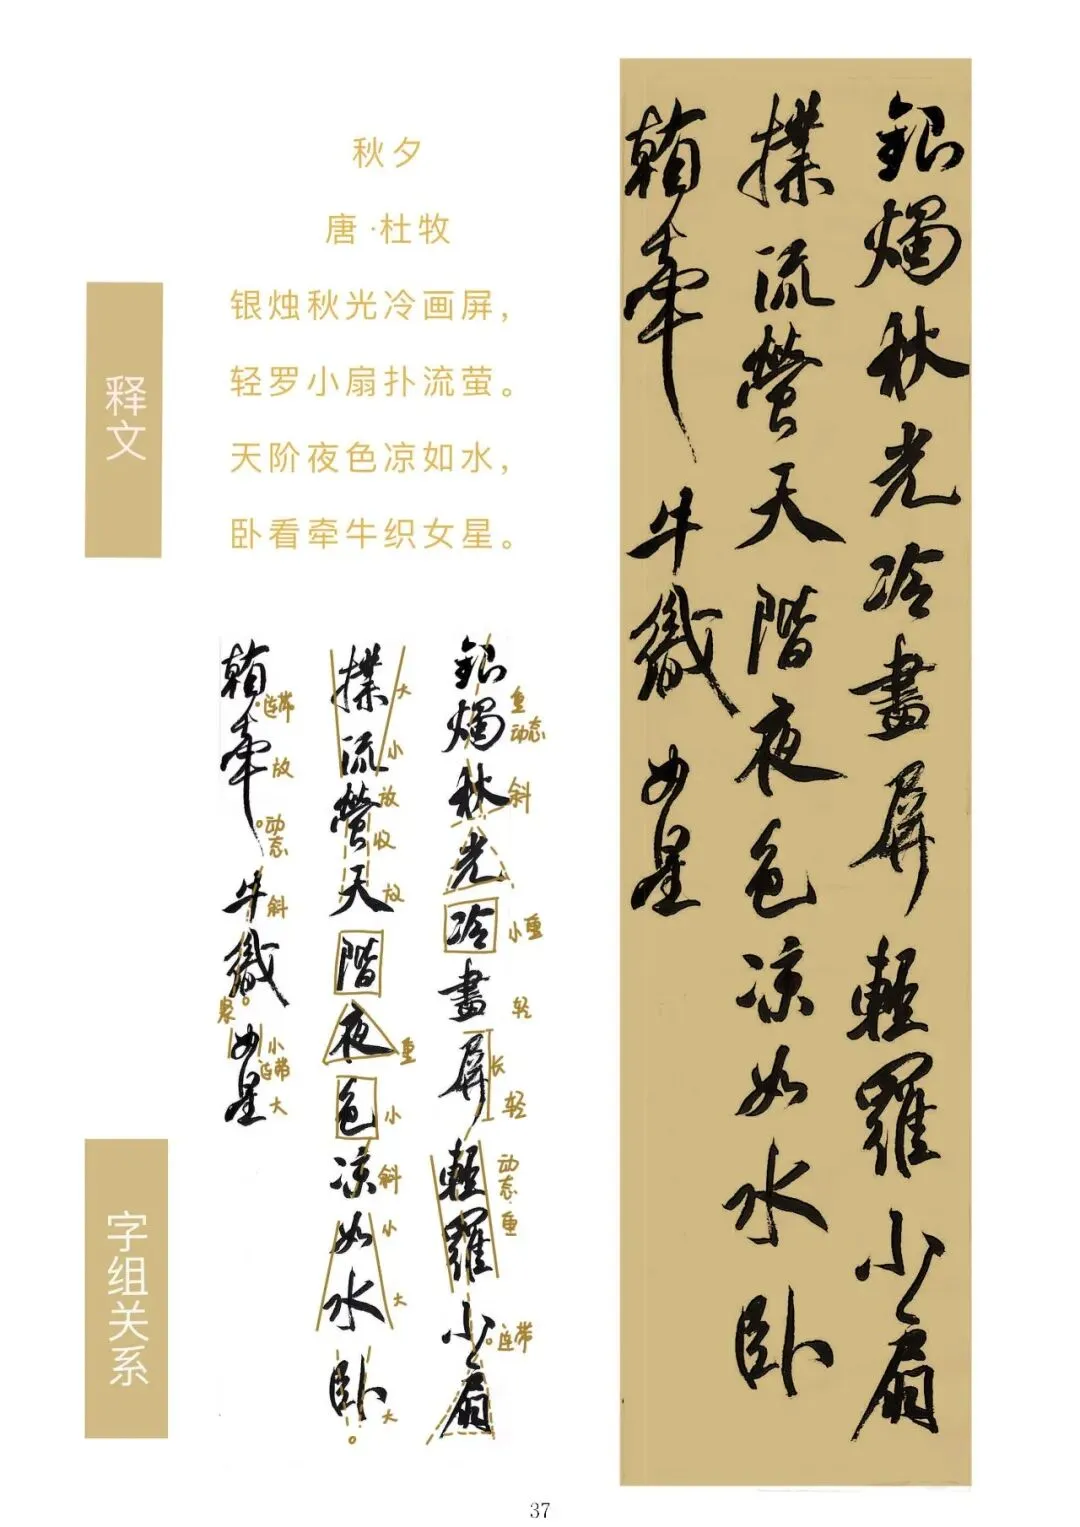 秋夕
唐·杜牧
释文
银烛秋光冷画屏，
轻罗小扇扑流萤。
天阶夜色凉如水，
卧看牵牛织女星。
銀燭秋光冷畫屏輕羅小扇
撲流螢天階夜色凉如水卧
看牽牛織女星
字组关系
銀燭秋光冷畫屏輕羅小扇
重
动态
斜
小重
轻
长
轻
动态·重
连带
撲流螢天階夜色凉如水卧
大
小
放
收
放
重
小
斜
小
大
大
看牽牛織女星
连带
放
动态
斜
小
连带
大
37